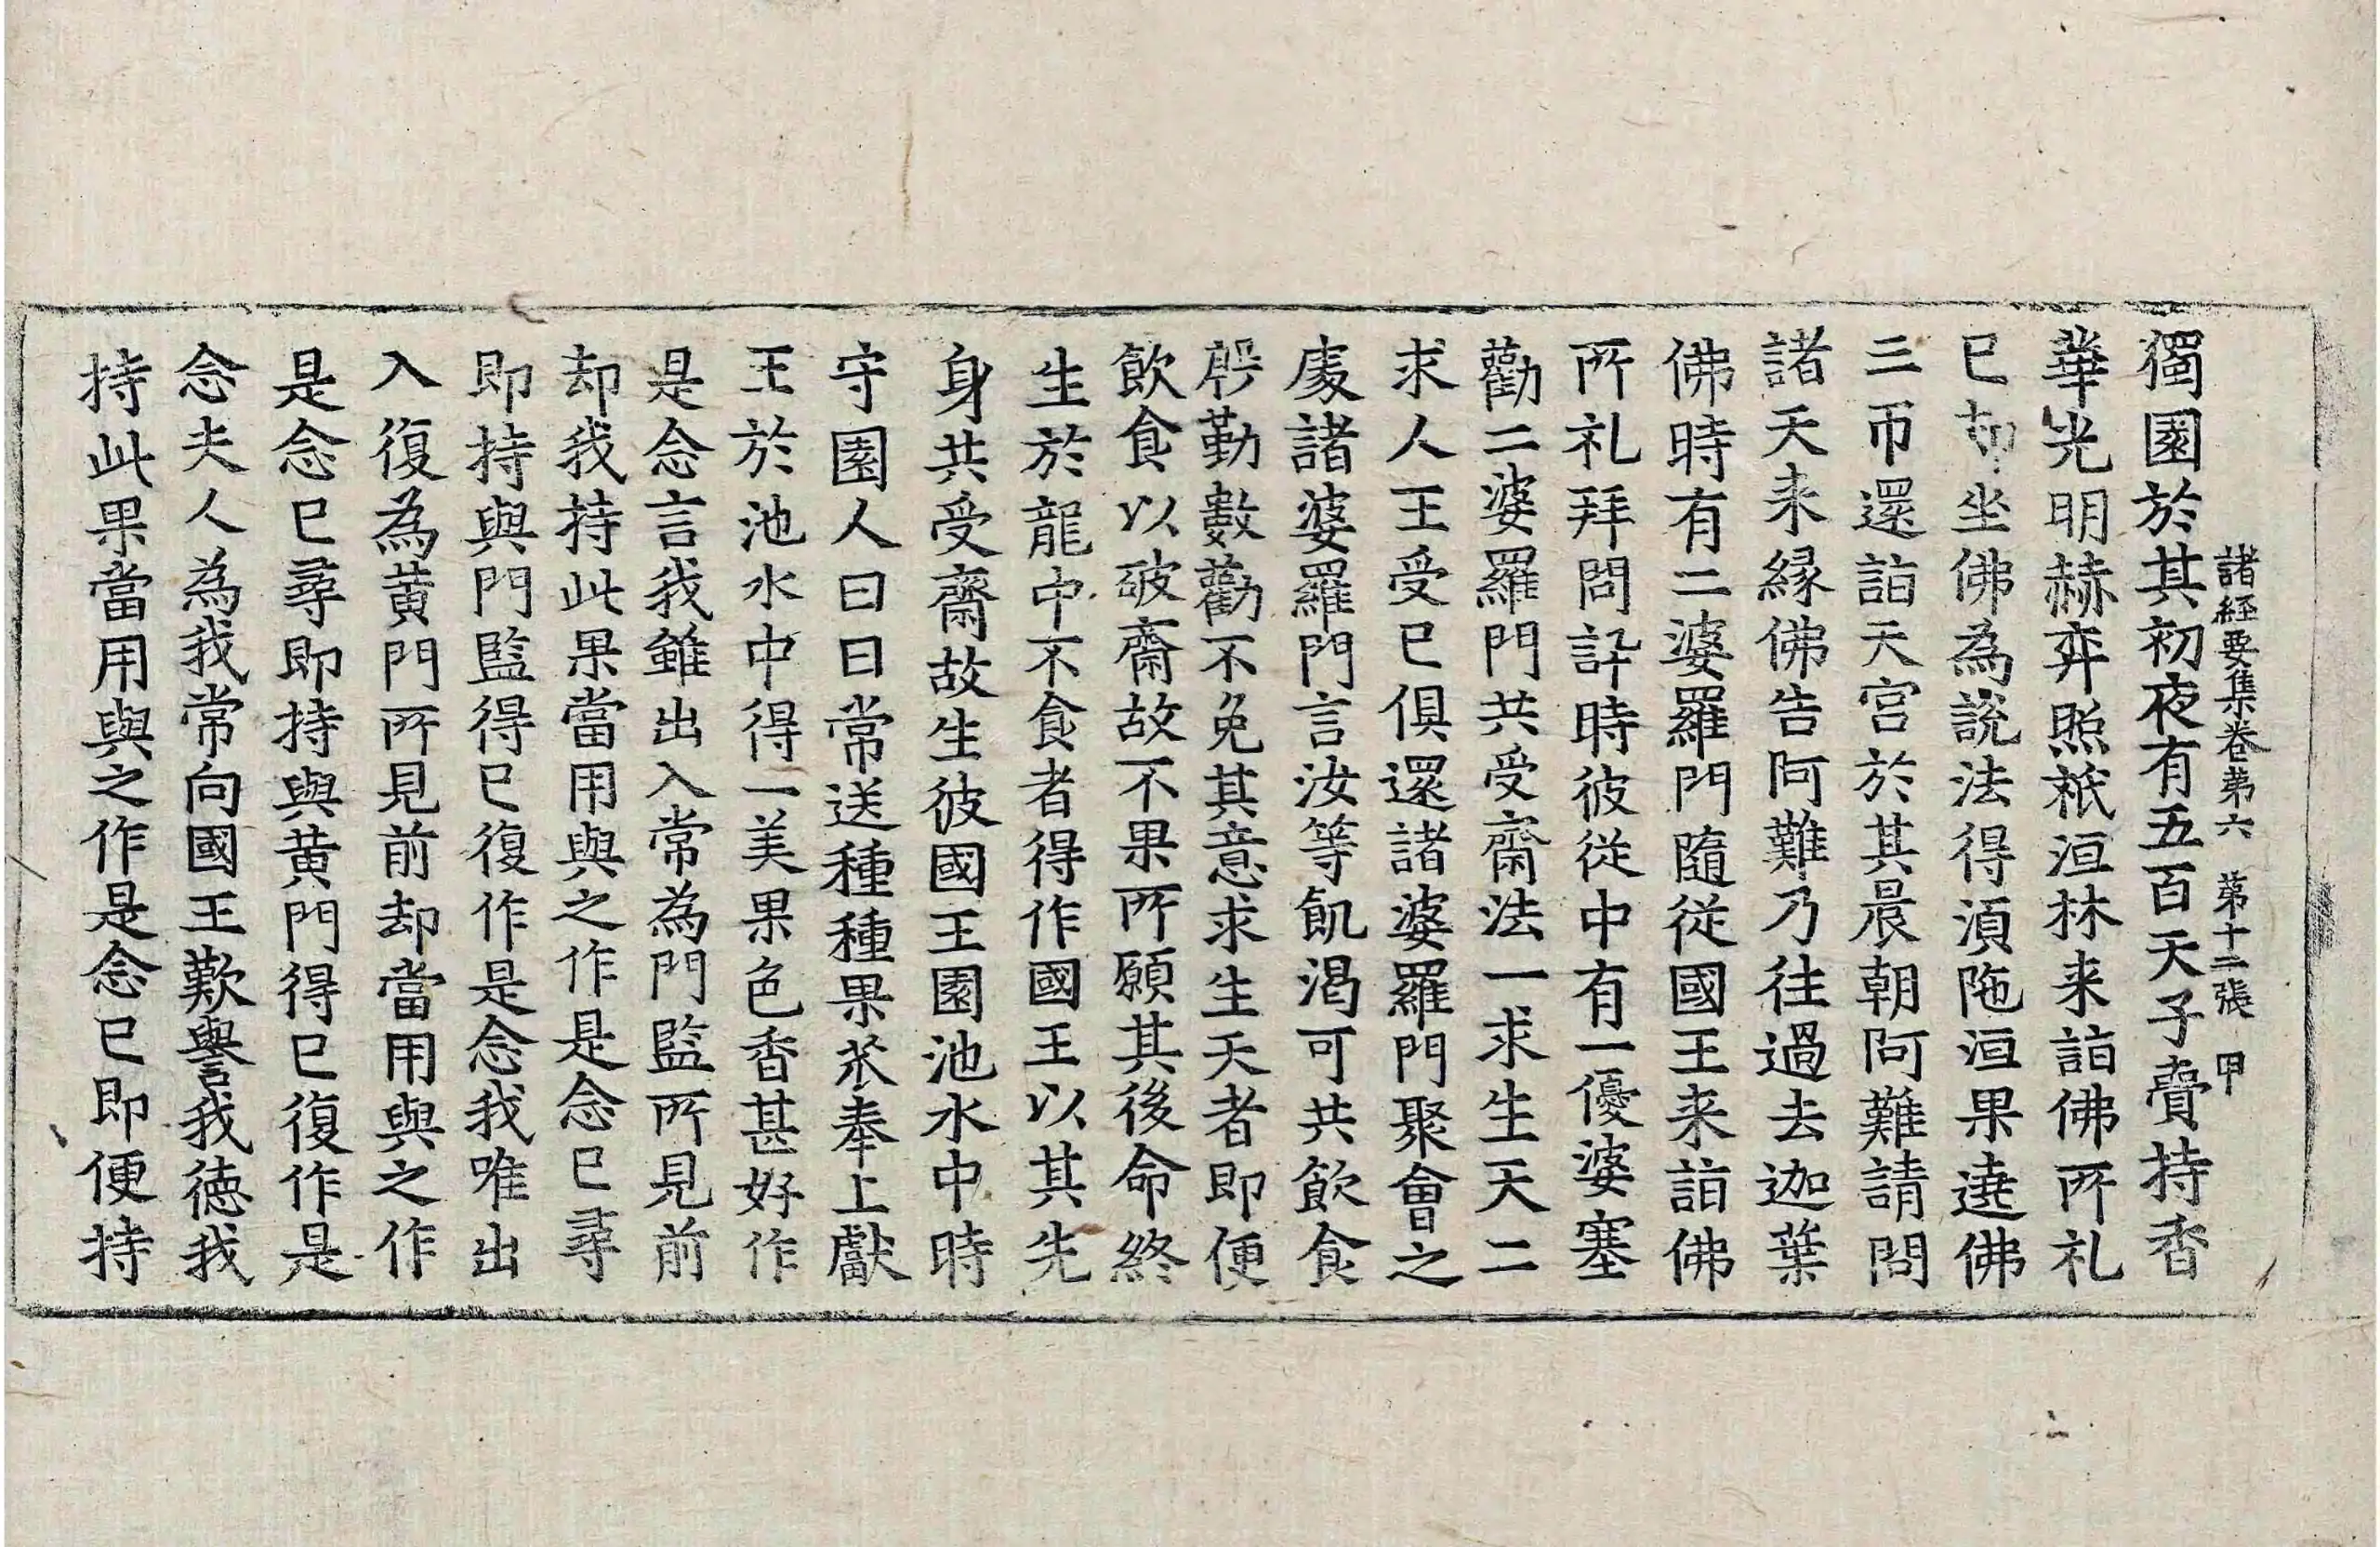 諸經要集卷苐六　苐十二張　甲
獨園於其初夜有五百天子賷持香
華光明赫弈照祇洹林来詣佛所礼
已却坐佛為說法得湏陁洹果遶佛
三帀還詣天宫於其晨朝阿難請問
諸天来縁佛告阿難乃往過去迦葉
佛時有二婆羅門隨從國王来詣佛
所礼拜問訙時彼從中有一優婆塞
勸二婆羅門共受齋法一求生天二
求人王受已俱還諸婆羅門聚會之
䖏諸婆羅門言汝等飢渴可共飲食
慇勤數勸不免其意求生天者即便
飲食以破齋故不果所願其後命終
生於龍中不食者得作國王以其先
身共受齋故生彼國王園池水中時
守園人日日常送種種果菜奉上獻
王於池水中得一美果色香甚好作
是念言我雖出入常為門監所見前
却我持此果當用與之作是念已尋
即持與門監得已復作是念我唯出
入復為黄門所見前却當用與之作
是念已尋即持與黄門得已復作是
念夫人為我常向國王歎譽我徳我
持此果當用與之作是念已即便持